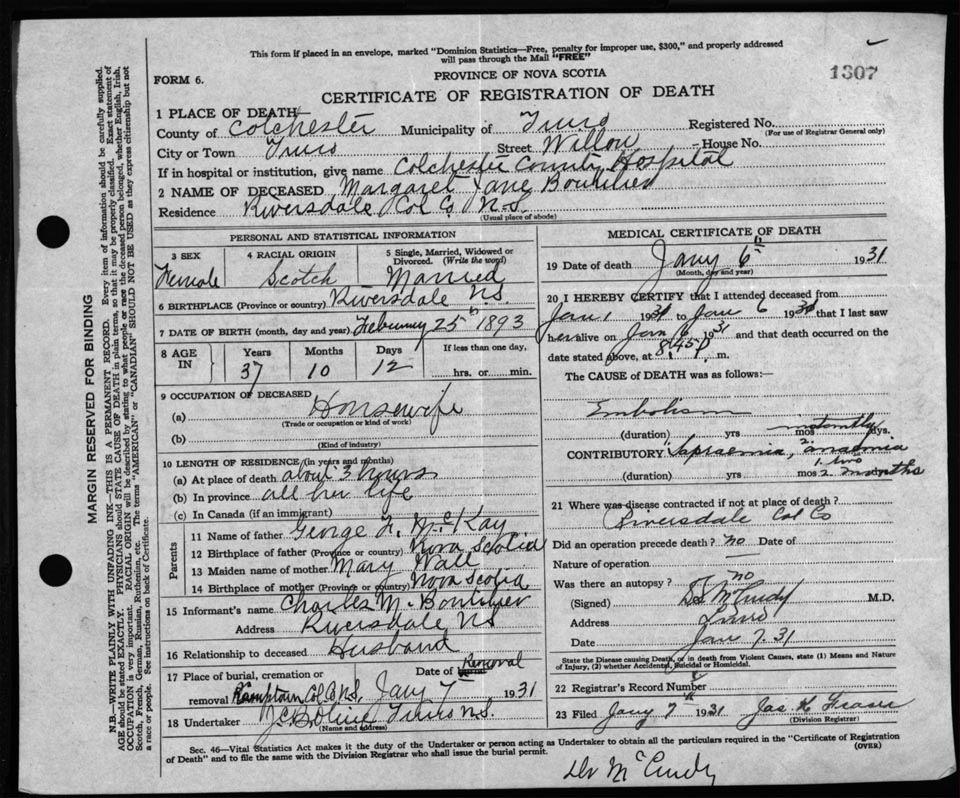 This form if placed in an envelope, marked "Dominion Statistics—Free, penalty for improper use, $300," and properly addressed
will pass through the Mail "FREE"
PROVINCE OF NOVA SCOTIA
FORM 6.
1307
CERTIFICATE OF REGISTRATION OF DEATH
1 PLACE OF DEATH
County of Colchester Municipality of Truro Registered No.
(For use of Registrar General only)
City or Town Truro Street Willow House No.
If in hospital or institution, give name Colchester County Hospital
2 NAME OF DECEASED Margaret Jane Boutilier
Residence Riversdale Col Co N.S.
(Usual place of abode)
PERSONAL AND STATISTICAL INFORMATION
3 SEX Female
4 RACIAL ORIGIN Scotch
5 Single, Married, Widowed or Divorced. (Write the word) Married
6 BIRTHPLACE (Province or country) Riversdale N.S.
7 DATE OF BIRTH (month, day and year) February 25th 1893
8 AGE IN Years 37 Months 10 Days 12 If less than one day, hrs. or min.
9 OCCUPATION OF DECEASED
(a) Housewife
(Trade or occupation or kind of work)
(b)
(Kind of industry)
10 LENGTH OF RESIDENCE (in years and months)
(a) At place of death about 3 hours
(b) In province all her life
(c) In Canada (if an immigrant)
Parents
11 Name of father George F. McKay
12 Birthplace of father (Province or country) Nova Scotia
13 Maiden name of mother Mary Wall
14 Birthplace of mother (Province or country) Nova Scotia
15 Informant's name Charles M. Boutilier
Address Riversdale NS
16 Relationship to deceased Husband
17 Place of burial, cremation or Date of burial Removal
removal Kemptown Col Co N.S. Jany 7 1931
18 Undertaker Truro N.S.
(Name and address)
MEDICAL CERTIFICATE OF DEATH
19 Date of death Jany 6th 1931
(Month, day and year)
20 I HEREBY CERTIFY that I attended deceased from
Jan 1 1931 to Jan 6 1931 that I last saw
her alive on Jan 6 1931 and that death occurred on the
date stated above, at 8.45 p. m.
The CAUSE of DEATH was as follows:—
Embolism
(duration) yrs mos days. instantly
CONTRIBUTORY 1. Sapraemia, 2. anaemia
(duration) yrs mos days 1. two 2. months
21 Where was disease contracted if not at place of death?
Riversdale Col Co
Did an operation precede death? no Date of
Nature of operation
Was there an autopsy? no
(Signed) McCurdy M.D.
Address Truro
Date Jan 7. 31
State the Disease causing Death, or in death from Violent Causes, state (1) Means and Nature
of Injury, (2) whether Accidental, Suicidal or Homicidal.
22 Registrar's Record Number
23 Filed Jany 7th 1931 Jas. H Fraser
(Division Registrar)
Sec. 46—Vital Statistics Act makes it the duty of the Undertaker or person acting as Undertaker to obtain all the particulars required in the "Certificate of Registration
of Death" and to file the same with the Division Registrar who shall issue the burial permit.
(OVER)
Dr McCurdy
MARGIN RESERVED FOR BINDING
N.B.—WRITE PLAINLY WITH UNFADING INK—THIS IS A PERMANENT RECORD. Every item of information should be carefully supplied.
AGE should be stated EXACTLY. PHYSICIANS should STATE CAUSE OF DEATH in plain terms, so that it may be properly classified. Exact statement of
OCCUPATION is very important. RACIAL ORIGIN will be described by stating to what people or race the deceased person belonged, whether English, Irish,
Scotch, French, German, Russian, Ruthenian, etc. The terms "AMERICAN" or "CANADIAN" SHOULD NOT BE USED as they express citizenship but not
a race or people. See instructions on back of Certificate.